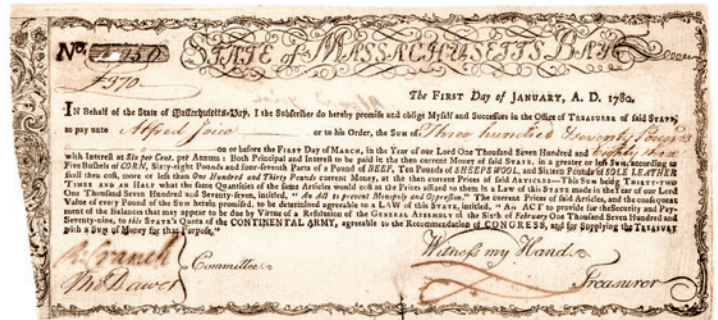 No. 150 STATE of MASSACHUSETTS BAY
£370
The FIRST Day of JANUARY, A. D. 1780.
IN Behalf of the State of Massachusetts-Bay, I the Subscriber do hereby promise and oblige Myself and Successors in the Office of TREASURER of said STATE,
to pay unto Alfred or to his Order, the Sum of Three hundred Seventy
on or before the FIRST Day of MARCH, in the Year of our Lord One Thousand Seven Hundred and Eighty three
with Interest at Six per Cent. per Annum : Both Principal and Interest to be paid in the then current Money of said STATE, in a greater or less SUM, according as
Five Bushels of CORN, Sixty-eight Pounds and four-seventh Parts of a Pound of BEEF, Ten Pounds of SHEEPS WOOL, and Sixteen Pounds of SOLE LEATHER
shall then cost, more or less than One Hundred and Thirty Pounds current Money, at the then current Prices of said ARTICLES—This SUM being THIRTY-TWO
TIMES AND AN HALF what the same Quantities of the same Articles would cost at the Prices affixed to them in a Law of this STATE made in the Year of our Lord
One Thousand Seven Hundred and Seventy-seven, intitled, " An Act to prevent Monopoly and Oppression." The current Prices of said Articles, and the consequent
Value of every Pound of the SUM herein promised, to be determined agreeable to a LAW of this STATE, intitled, " An ACT to provide for the Security and Pay-
ment of the Balances that may appear to be due by Virtue of a Resolution of the GENERAL ASSEMBLY of the Sixth of February One Thousand Seven Hundred and
Seventy-nine, to this STATE's Quota of the CONTINENTAL ARMY, agreeable to the Recommendation of CONGRESS, and for Supplying the TREASURY
with a Sum of Money for that Purpose."
Cranch Witness my Hand.
Thos Dawes Committee. Treasurer